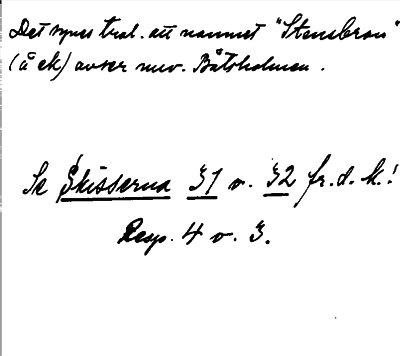 Det synes trol. att namnet "Stensbron"
(å ek) avser nuv. Båtsholmen.
Se Skisserna 31 o. 32 fr. d. k.!
Resp. 4 o. 3.